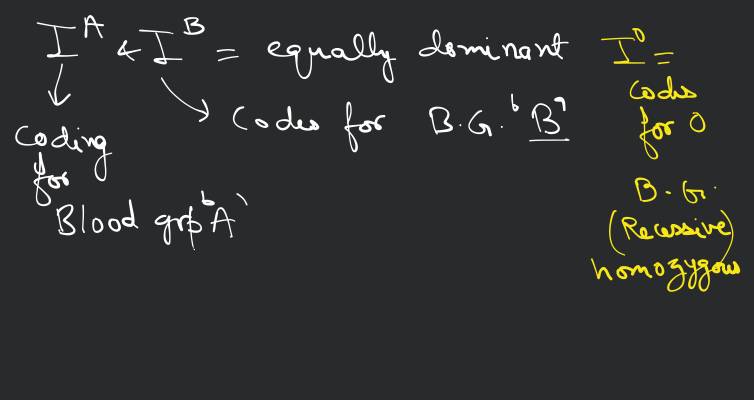 I^A & I^B = equally dominant
Coding
for
Blood grp 'A'
Codes for B.G. 'B'
I^O =
Codes
for O
B.G.
(Recessive)
homozygous